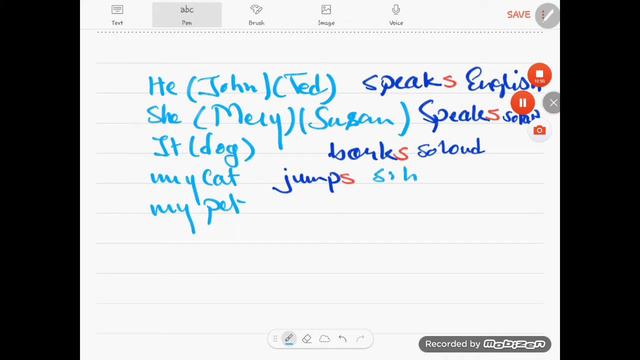 abc
SAVE
Text Pen Brush Image Voice
He (John) (Ted) speaks English
She (Mery) (Susan) Speaks
It (dog) barks so loud
my cat jumps
my pet
Recorded by
MOBIZEN